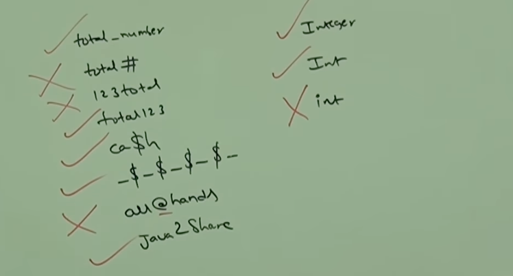 total_number
total#
123total
total123
ca$h
_$_$_$_$_
all@hands
Java2Share
Integer
Int
int